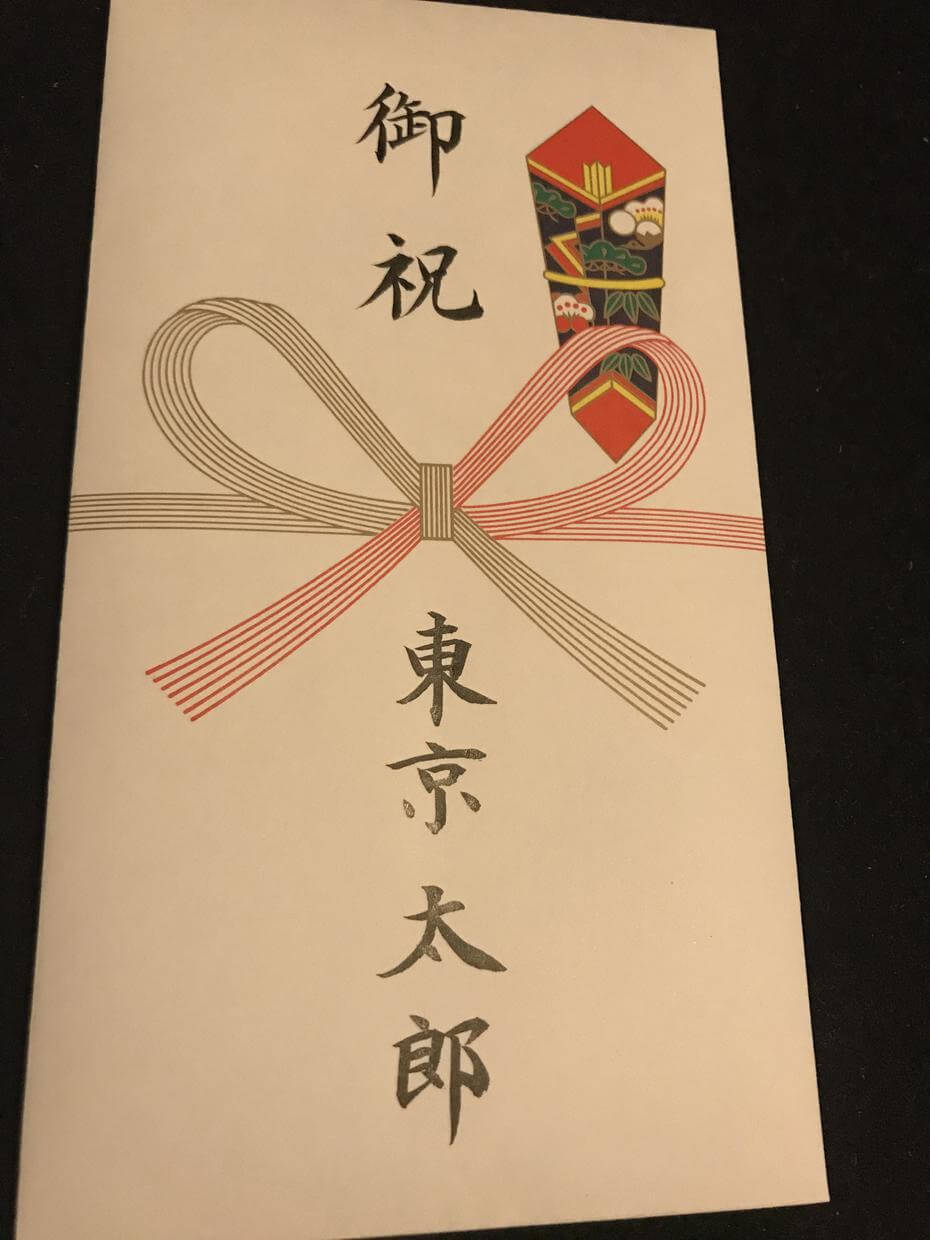 御祝
東京太郎